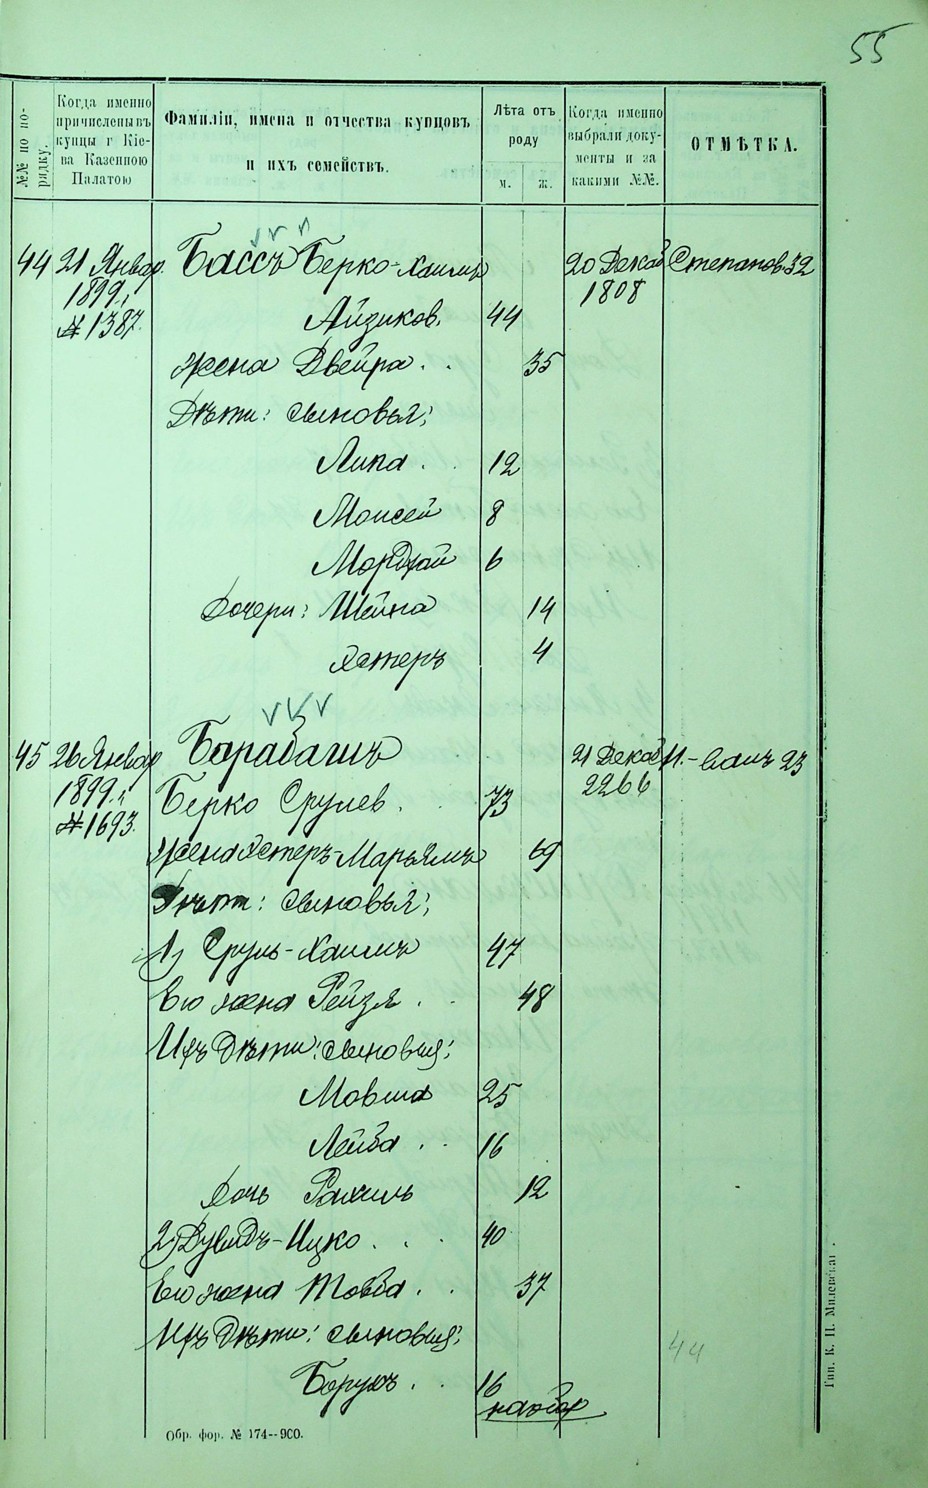 55
№№ по порядку.
Когда именно причислены въ купцы г Кіева Казенною Палатою
Фамиліи, имена и отчества купцовъ и ихъ семействъ.
Лѣта отъ роду
м. ж.
Когда именно выбрали документы и за какими №№.
ОТМѢТКА.
44 21 Январ. Бассъ Берко-Хаимъ 20 Декаб Степанов. 32
1899 г. 1808
№ 1387. Айзиков. 44
жена Двейра . . 35
Дѣти: сыновья:
Липа . . 12
Моисей 8
Мордхай 6
Дочери: Шейна 14
Эстеръ 4
45 26 Январ Барабашъ 21 Декаб 23
1899 г. 2266
№ 1693. Берко Срулев . . 73
жена Эстеръ-Марьямъ 69
Дѣти: сыновья:
1) Сруль-Хаимъ 47
Его жена Рейзя . . 48
Ихъ дѣти: сыновья:
Мовша 25
Лейба . . 16
Дочь Рахиль 12
2) Дувидъ-Ицко . . . 40
Его жена Товба . . 37
Ихъ дѣти: сыновья:
44
Борухъ . . 16
на обор
Обр. фор. № 174--900.
Тип. К. Н. Милевскаго.